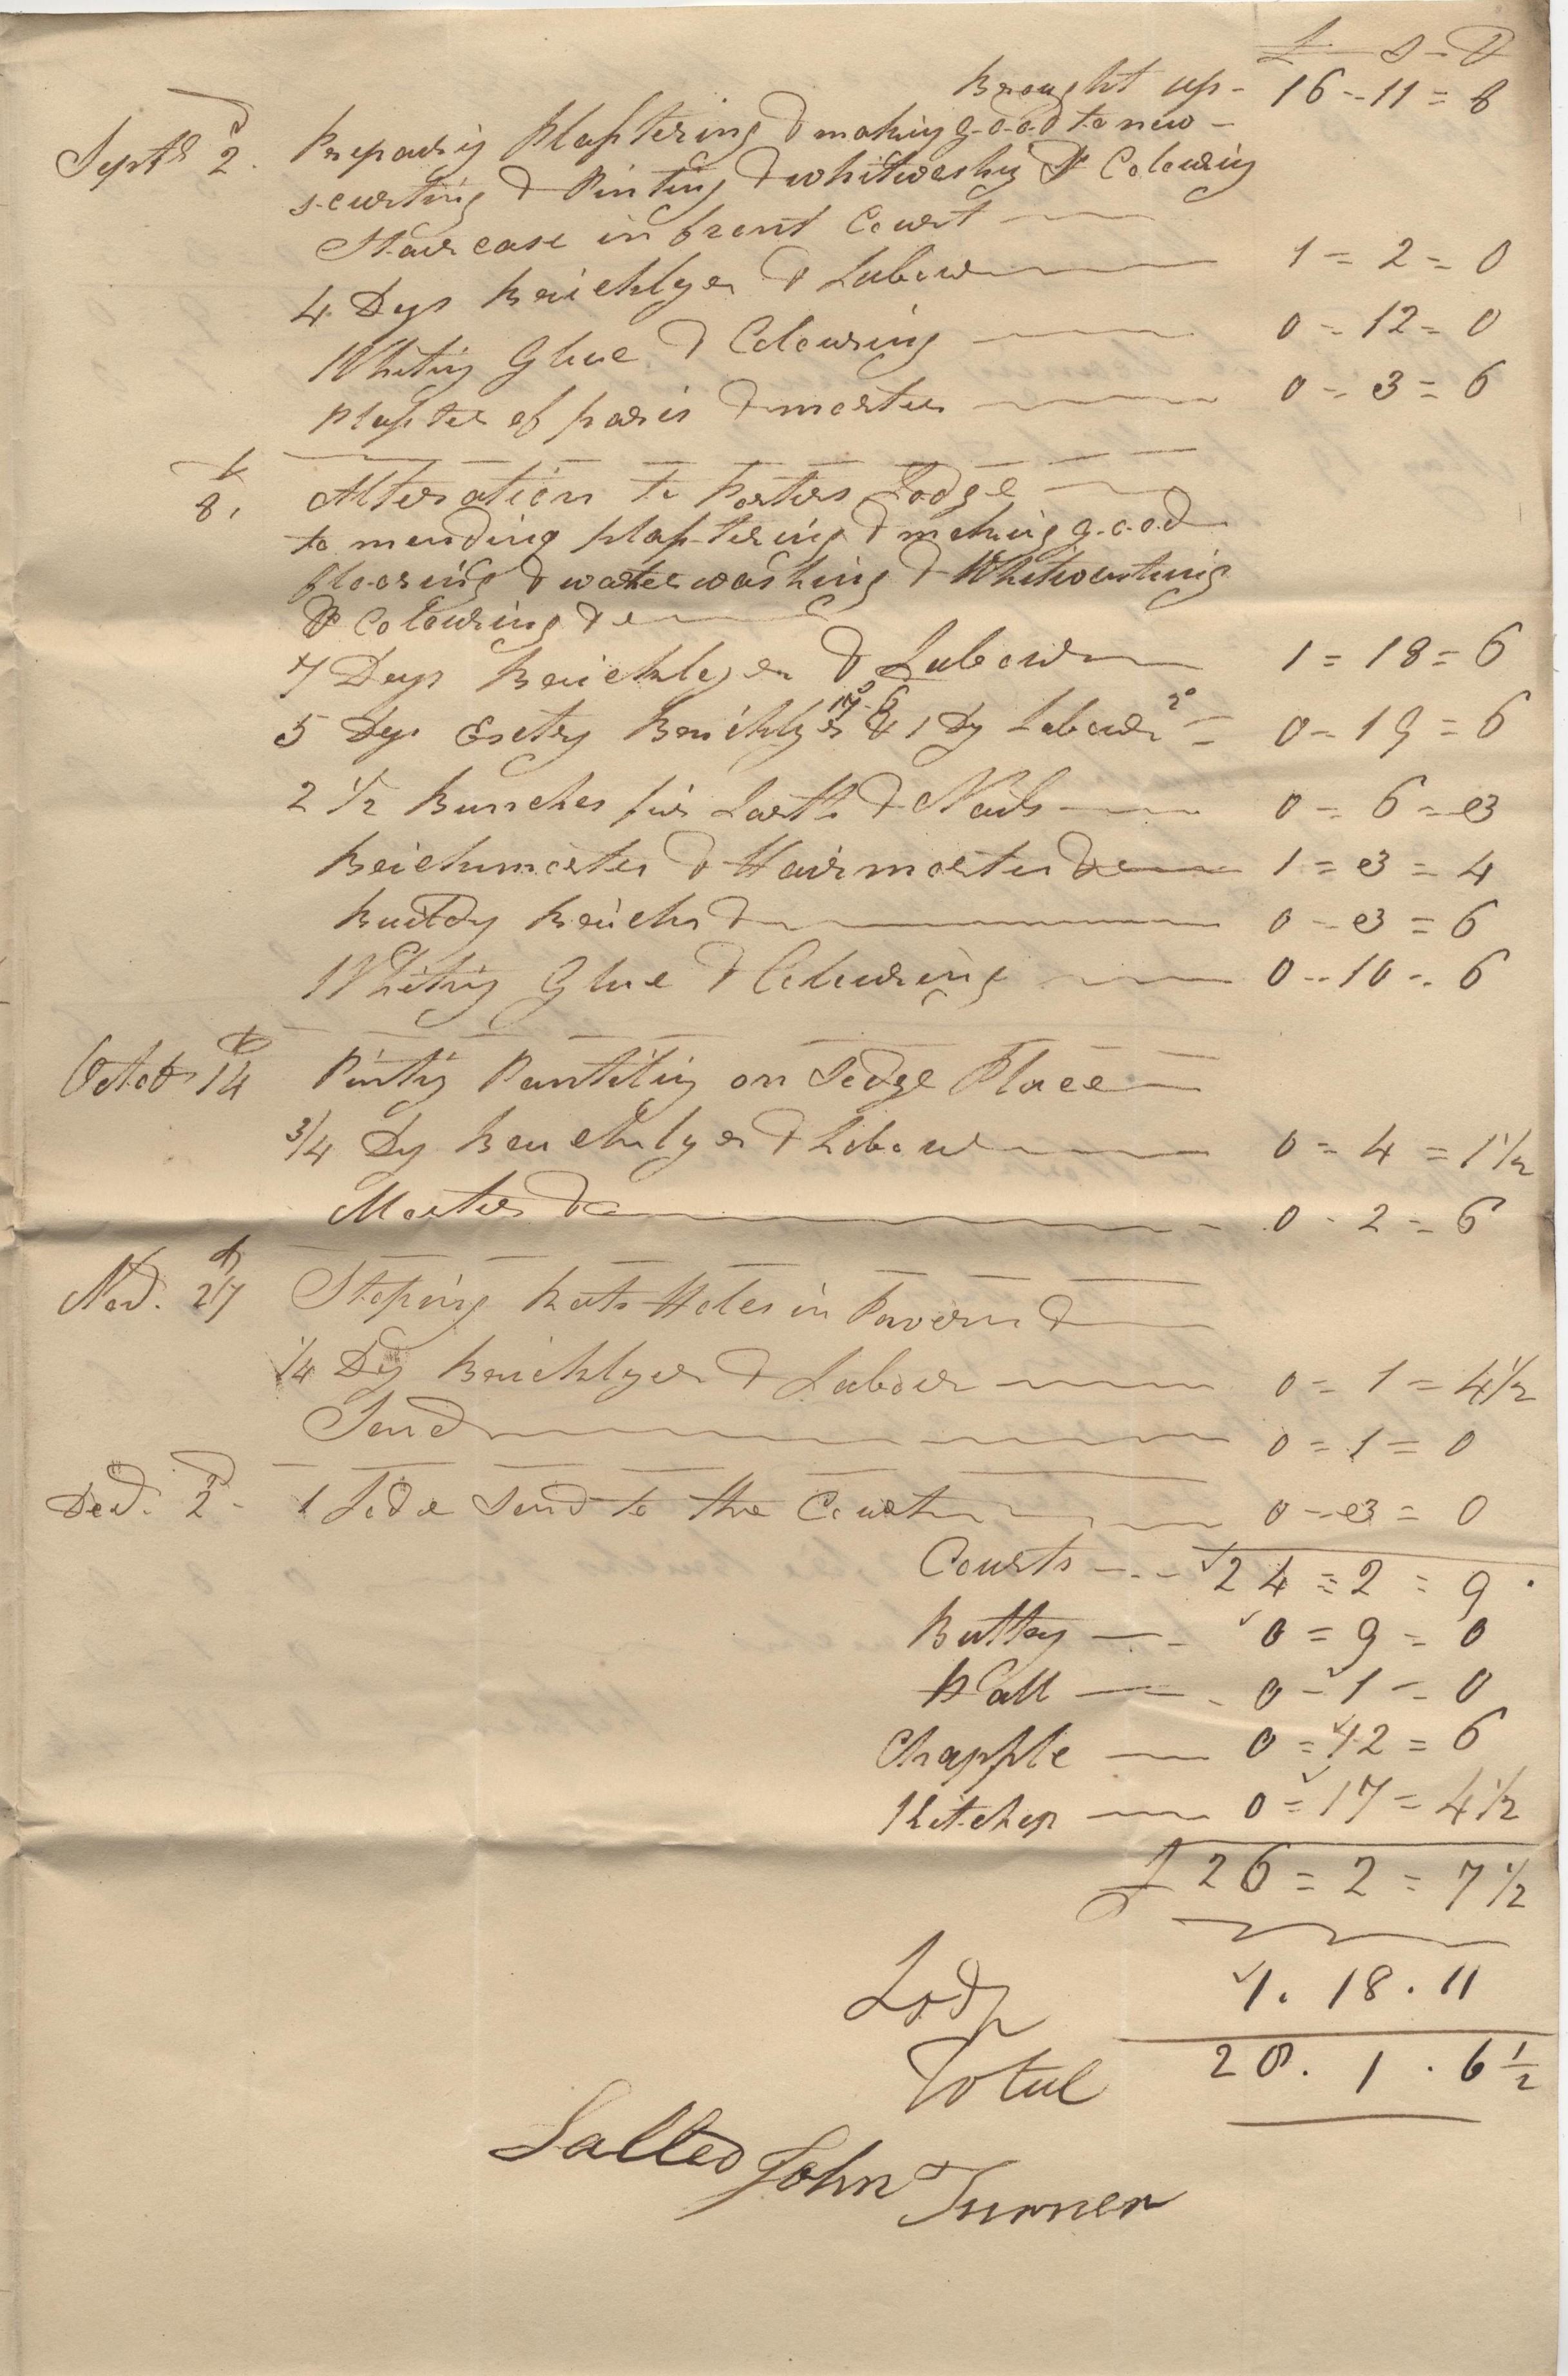 £ = S = D
Brought up - 16 = 11 = 8
Septr 2d. Repairig Plastering & making good to new
scurting & Pinting & whitweshig & Colourig
Staircase in front Court
4 Dys Breicklyer & Labour 1 = 2 = 0
Whitig Glue & Colouring 0 = 12 = 0
Plaster of paris & morter 0 = 3 = 6
8th. Alteration to Porters Lodge
to mending plastering & making good
flooring & water washing & Whitweshing
& Colouring &c
7 Days Breicklyer & Labour 1 = 18 = 6
5 Dys Breicklyer 17=6 & 1 Dy Labour 2s = 0 = 19 = 6
2 1/2 Bunches fir Larths & Nails 0 = 6 = 3
Breickmorter & Hairmorter &c 1 = 3 = 4
Buildg Breicks & 0 = 3 = 6
Whitig Glue & Colouring 0 = 10 = 6
Octobr 14th Pintig Pantilig on Sedge Place
3/4 Dy Breicklyer & Labour 0 = 4 = 1 1/2
Morter &c 0 = 2 = 6
Nov. 27th Stoping Rats Holes in &
1/4 Dy Breicklyer & Labour 0 = 1 = 4 1/2
Sand 0 = 1 = 0
Decr. 2d 1 Lode Sand to the Court 0 = 3 = 0
Courts 24 = 2 = 9
Buttey 0 = 9 = 0
Hall 0 = 1 = 0
Chapple 0 = 12 = 6
Kitchen 0 = 17 = 4 1/2
£ 26 = 2 = 7 1/2
Lodg 1. 18. 11
Total 28. 1. 6 1/2
John Turner